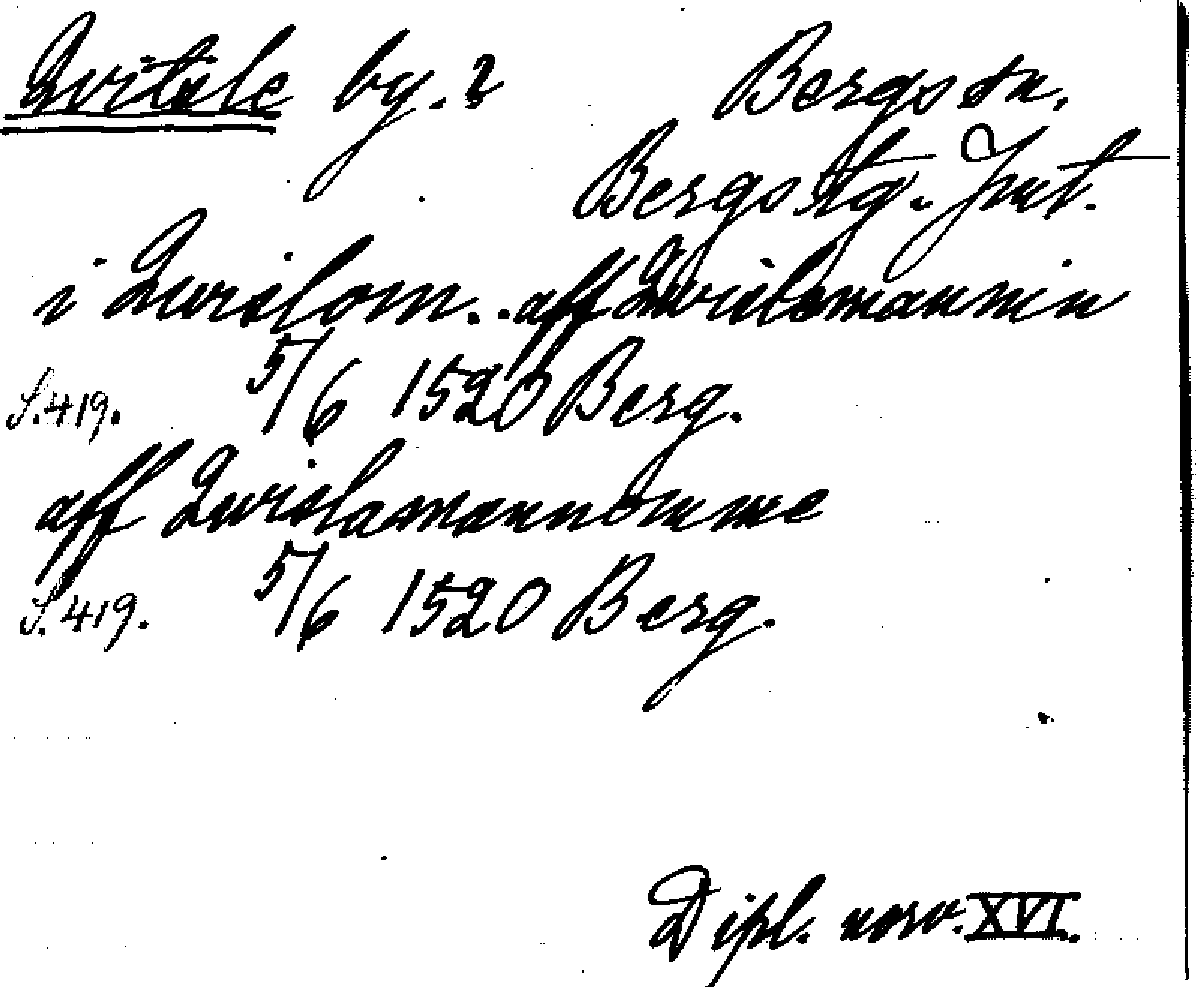 Qvitsle by. ? Bergs sn.
Bergs tg. Jmt.
i Quislom.. aff Quislemannin
S. 419. 5/6 1520 Berg.
aff Quislamannomme
S. 419. 5/6 1520 Berg.
Dipl. norv. XVI.